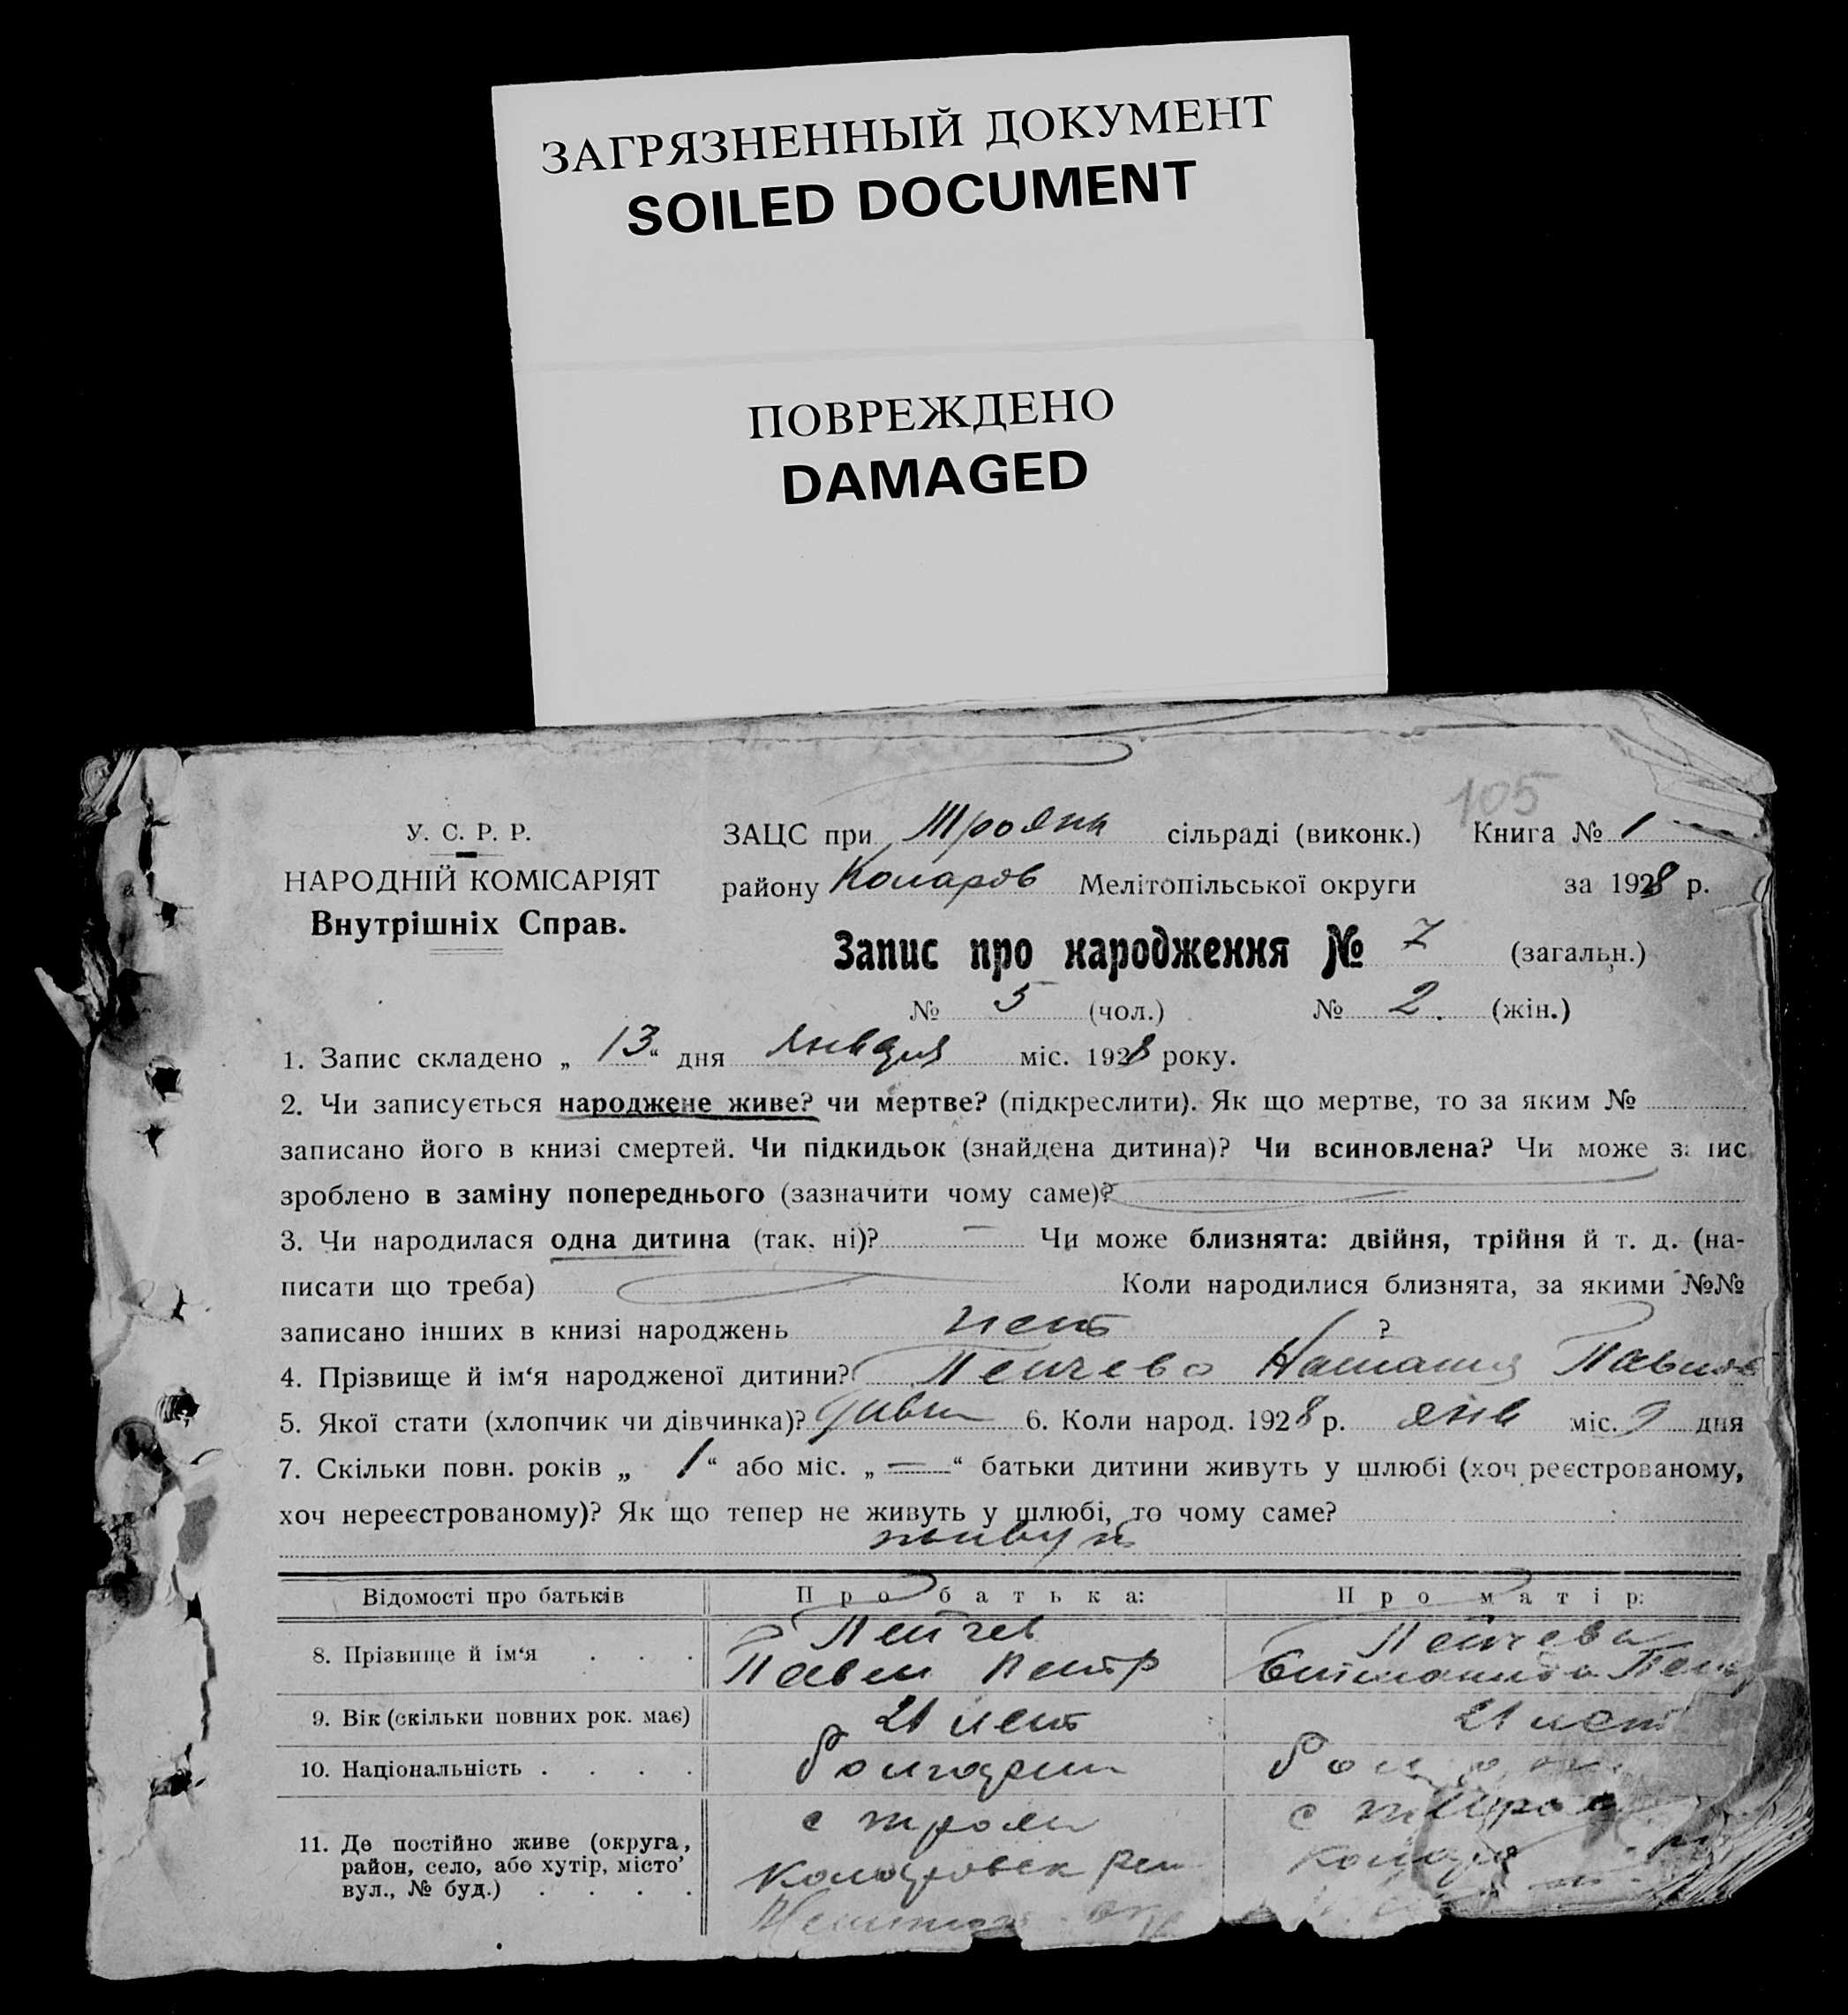 ЗАГРЯЗНЕННЫЙ ДОКУМЕНТ
SOILED DOCUMENT
ПОВРЕЖДЕНО
DAMAGED
105
У. С. Р. Р.
НАРОДНІЙ КОМІСАРІЯТ
Внутрішніх Справ.
ЗАЦС при Троян сільраді (виконк.) Книга № 1
району Коларов Мелітопільської округи за 1928 р.
Запис про народження № 7 (загальн.)
№ 5 (чол.) № 2. (жін.)
1. Запис складено „ 13 “ дня Января міс. 1928 року.
2. Чи записується народжене живе? чи мертве? (підкреслити). Як що мертве, то за яким №
записано його в книзі смертей. Чи підкидьок (знайдена дитина)? Чи всиновлена? Чи може запис
зроблено в заміну попереднього (зазначити чому саме)?
3. Чи народилася одна дитина (так, ні)? — Чи може близнята: двійня, трійня й т. д. (на-
писати що треба) Коли народилися близнята, за якими №№
записано інших в книзі народжень нет ?
4. Прізвище й ім‘я народженої дитини? Пейчева Наталия Павлов
5. Якої стати (хлопчик чи дівчинка)? 6. Коли народ. 1928 р. янв міс. 9 дня
7. Скільки повн. років „ 1 “ або міс. „ — “ батьки дитини живуть у шлюбі (хоч реєстрованому,
хоч нереєстрованому)? Як що тепер не живуть у шлюбі, то чому саме?
живут
Відомості про батьків Про батька: Про матір:
8. Прізвище й ім‘я . . . Пейчев Пейчева
Павел Петр
9. Вік (скільки повних рок. має) 21 лет 21 лет
10. Національність . . . . болгарин
11. Де постійно живе (округа, с Троян с
район, село, або хутір, місто’ Коларовск рай
вул., № буд.) . . . .